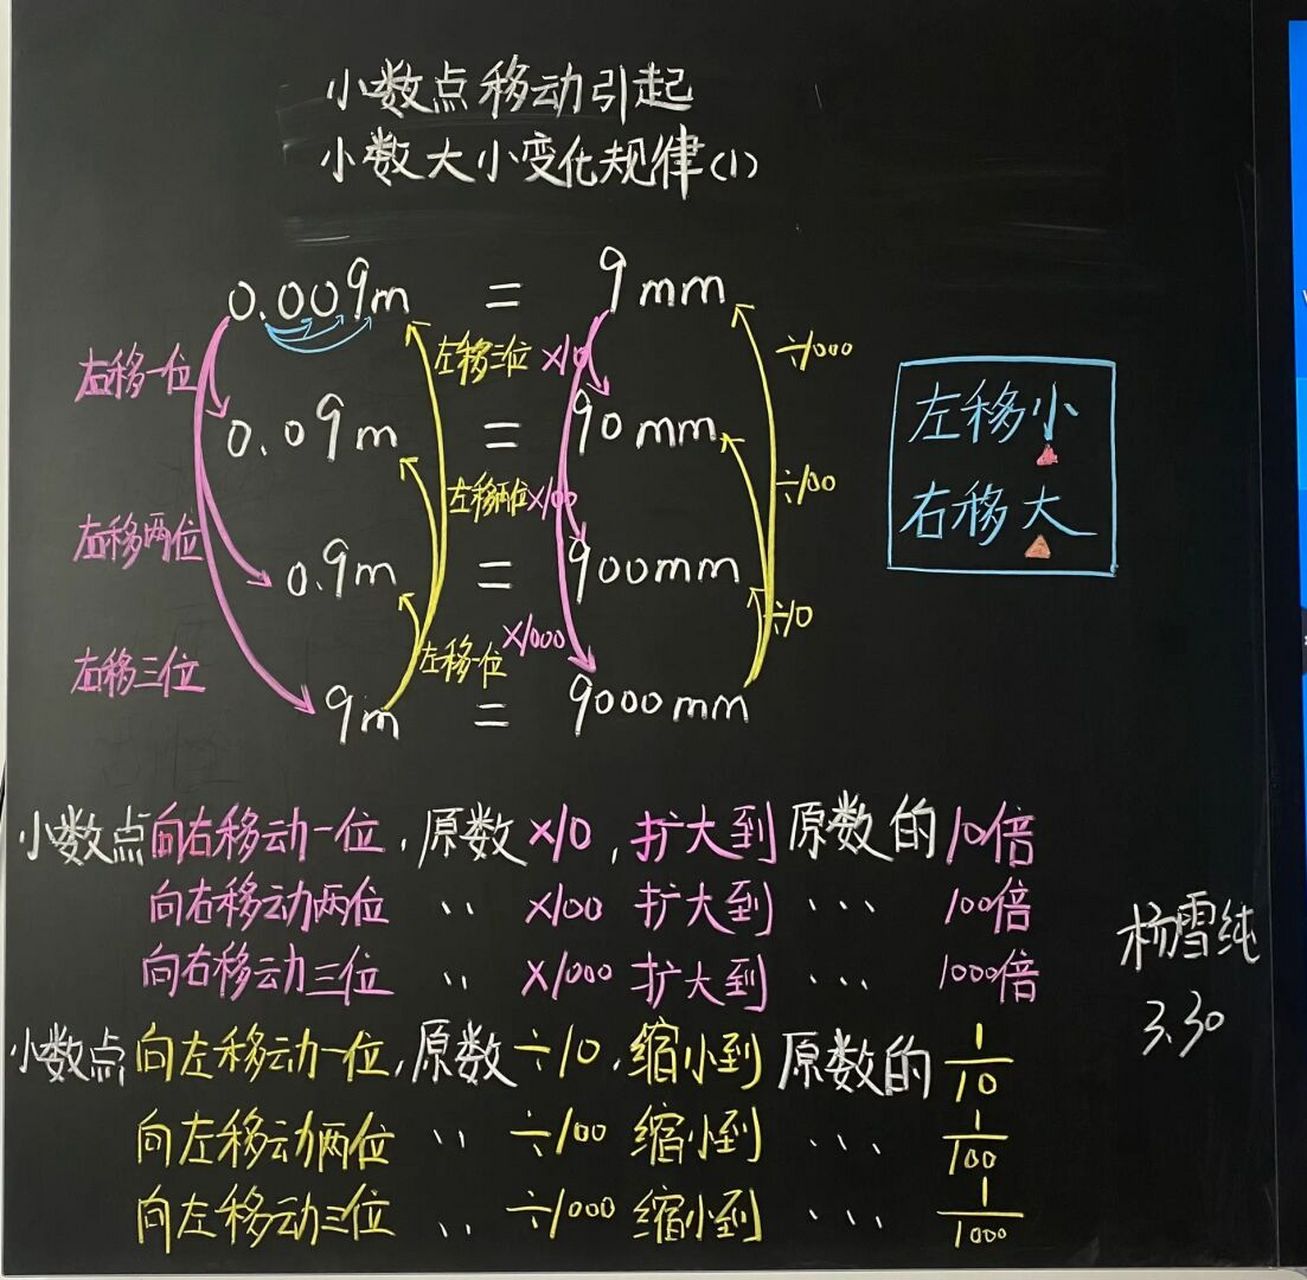 小数点移动引起
小数大小变化规律(1)
0.009m = 9mm
右移一位 左移三位 ×10 ÷1000
0.09m = 90mm
左移小
右移两位 左移两位 ×100 ÷100
右移大
0.9m = 900mm
右移三位 左移一位 ×1000 ÷10
9m = 9000mm
小数点向右移动一位,原数×10,扩大到原数的10倍
向右移动两位 ‥ ×100 扩大到 … 100倍
向右移动三位 ‥ ×1000 扩大到 … 1000倍
小数点向左移动一位,原数÷10,缩小到原数的1/10
向左移动两位 ‥ ÷100 缩小到 … 1/100
向左移动三位 ‥ ÷1000 缩小到 … 1/1000
杨雪纯
3.30